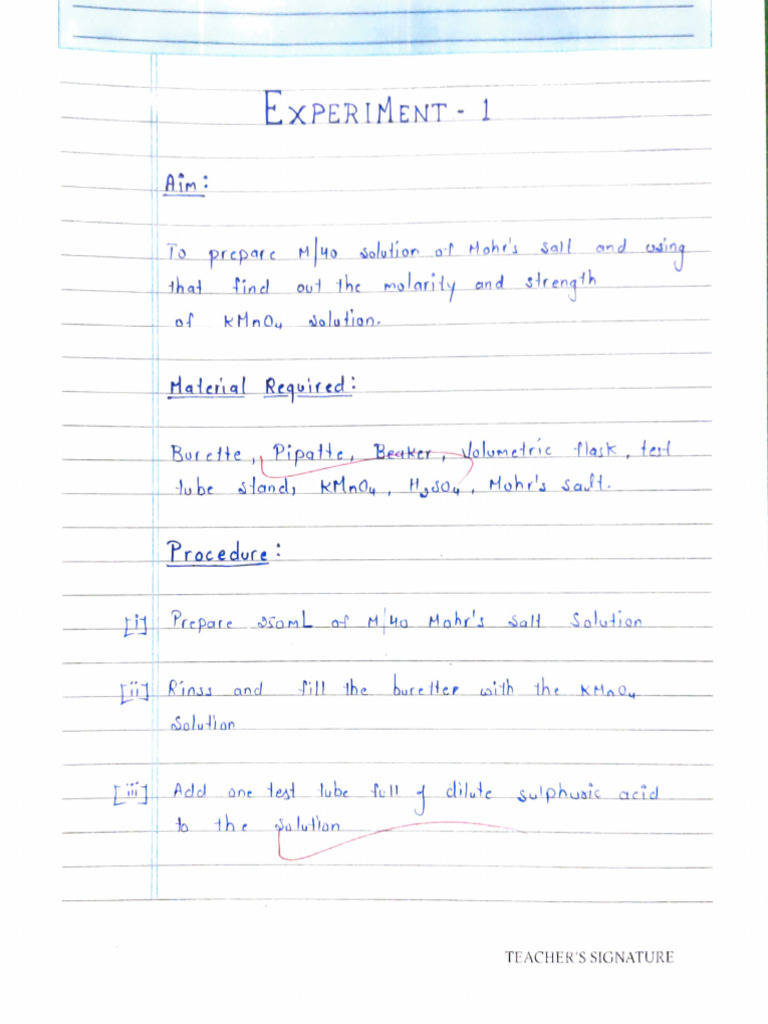 EXPERIMENT - 1
Aim:
To prepare M/40 solution of Mohr's salt and using
that find out the molarity and strength
of KMnO4 solution.
Material Required:
Burette, Pipatte, Beaker, Volumetric flask, test
tube stand, KMnO4, H2SO4, Mohr's salt.
Procedure:
[i] Prepare 250mL of M/40 Mohr's Salt Solution
[ii] Rinss and fill the buretter with the KMnO4
Solution
[iii] Add one test tube full of dilute sulphuric acid
to the solution
TEACHER'S SIGNATURE